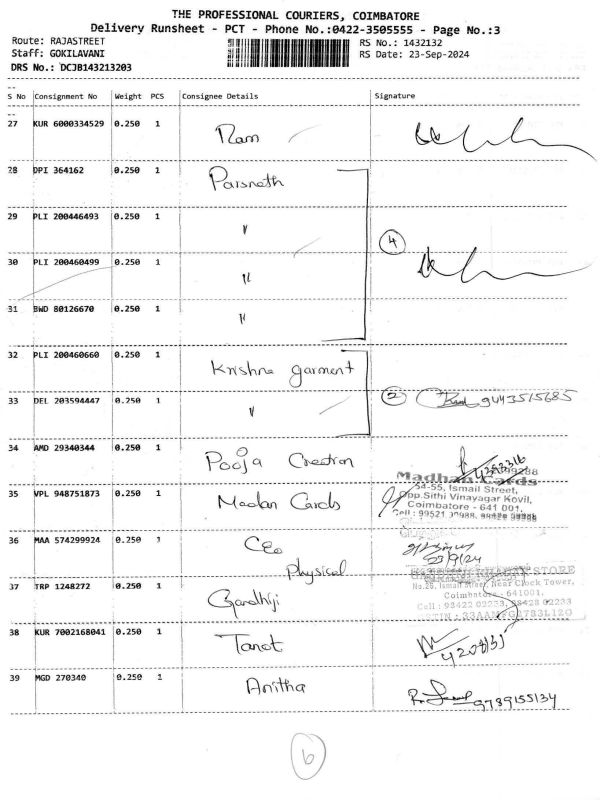 THE PROFESSIONAL COURIERS, COIMBATORE
Delivery Runsheet - PCT - Phone No.:0422-3505555 - Page No.:3
Route: RAJASTREET
Staff: GOKILAVANI
DRS No.: DCJB143213203
RS No.: 1432132
RS Date: 23-Sep-2024
S No Consignment No Weight PCS Consignee Details Signature
27 KUR 6000334529 0.250 1 Ram
28 DPI 364162 0.250 1 Parsnath
29 PLI 200446493 0.250 1 "
4
30 PLI 200460499 0.250 1 "
31 BWD 80126670 0.250 1 "
32 PLI 200460660 0.250 1 Krishna garment
33 DEL 203594447 0.250 1 " 2 9443515685
34 AMD 29340344 0.250 1 Pooja Creation
Madhan Cards
54-55, Ismail Street,
Opp.Sithi Vinayagar Kovil,
Coimbatore - 641 001.
35 VPL 948751873 0.250 1 Madan Cards
36 MAA 574299924 0.250 1 CEO Physical
23/9/24
STORE
No.26, Ismail Street, Near Clock Tower,
Coimbatore - 641001,
Cell : 98422 02233, 98428 02233
37 TRP 1248272 0.250 1 Gandhiji
38 KUR 7002168041 0.250 1 Tanot
39 MGD 270340 0.250 1 Anitha 9789155134
6